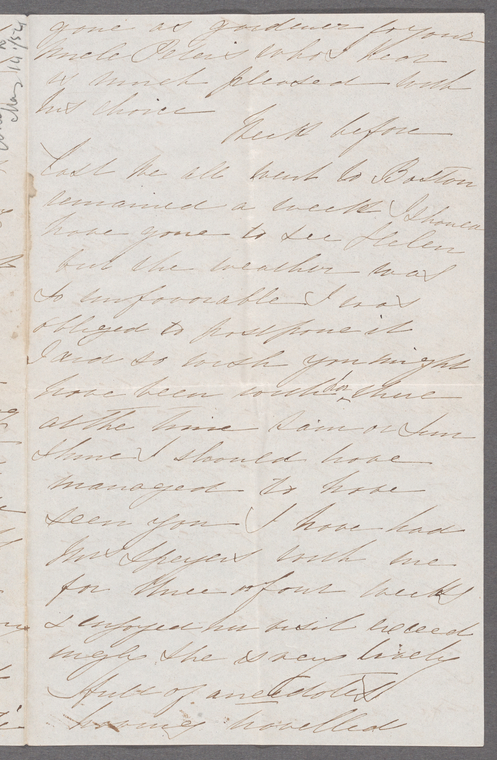 gone as gardener for your
Uncle Peters who I hear
is much pleased with
his choice
Week before
last we all went to Boston
remained a week I should
have gone to see Helen
but the weather was
so unfavorable I was
obliged to postpone it
I did so wish you might
have been there
at the time rain or sun
shine I should have
managed to have
seen you I have had
Mrs Speyers with me
for three or four weeks
& enjoyed her visit exceed
ingly she is very lively
& full of anecdotes
having travelled
May 14th /52